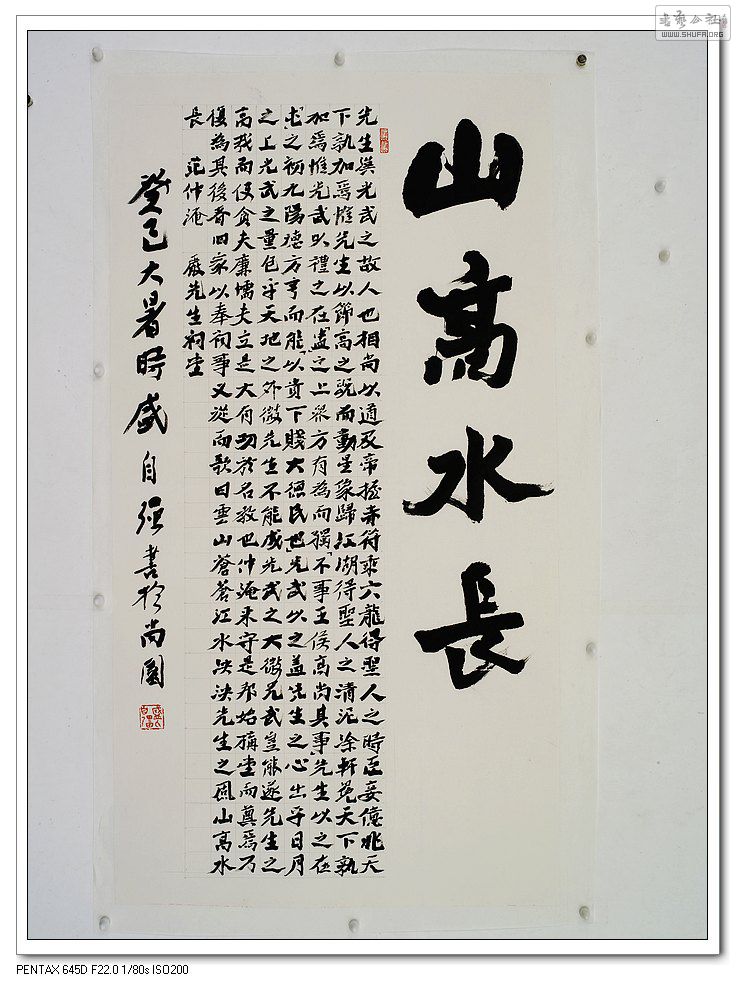 山高水長
先生與光武之故人也相尚以道及帝握赤符乘六龍得聖人之時臣妾億兆天
下孰加焉惟先生以節高之既而動星象歸江湖得聖人之清泥塗軒冕天下孰
加焉惟光武以禮之在「蠱」之上眾方有為而獨「不事王侯高尚其事」先生以之在
「屯」之初九陽德方亨而能「以貴下賤大德民也」光武以之蓋先生之心出乎日月
之上光武之量包乎天地之外微先生不能成光武之大微光武豈能遂先生之
高哉而使貪夫廉懦夫立是大有功於名教也仲淹來守是邦始構堂而奠焉乃
復為其後者四家以奉祠事又從而歌曰雲山蒼蒼江水泱泱先生之風山高水
長 范仲淹 嚴先生祠堂
癸巳大暑時盛自強書於尚園
书艺公社
WWW.SHUFA.ORG
PENTAX 645D F22.0 1/80s ISO200